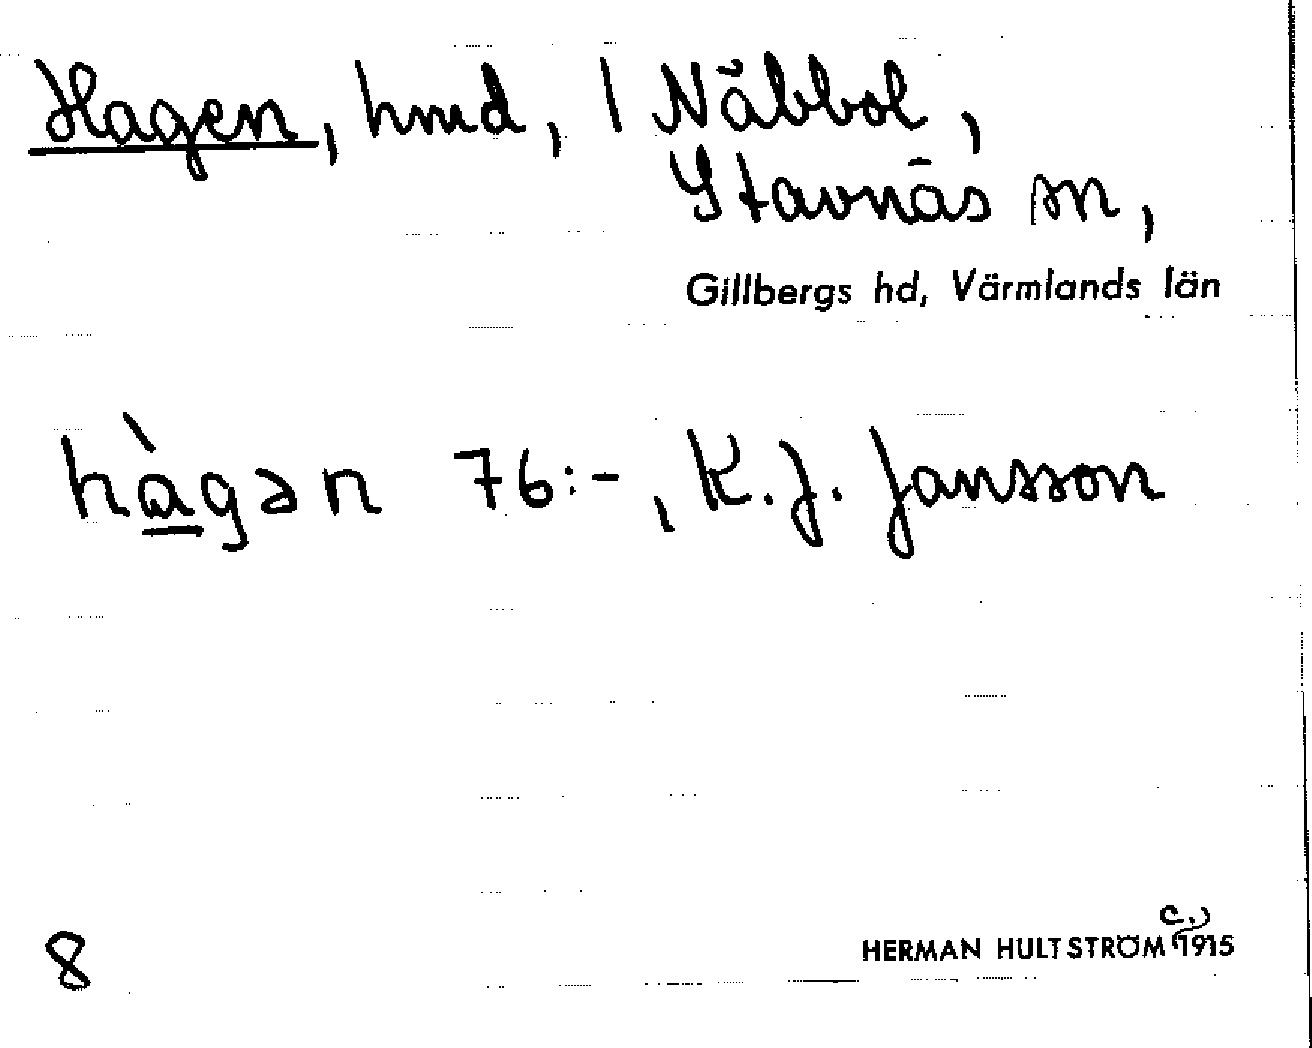 Hagen, hmd, 1 Näbbol,
Stavnäs sn,
Gillbergs hd, Värmlands län
hàgən 76:-, K. J. Jansson
c.)
8 HERMAN HULTSTRÖM 1915